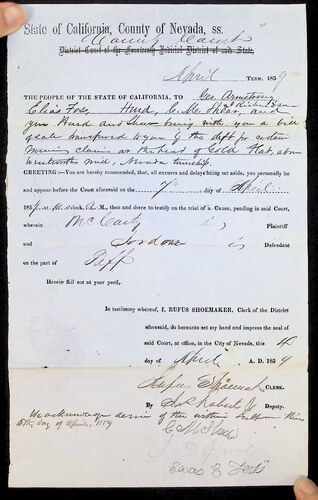 State of California, County of Nevada, ss.
County Court
District Court of the Fourteenth Judicial District of said State,
April TERM, 1859
THE PEOPLE OF THE STATE OF CALIFORNIA, TO Geo Armstrong
Elias Foss, Hurd, C. M. Shear, and
you Hurd and Shear bring with you a bill
sale transfered to you by the deft for certain
mining claims at the head of Gold Flat, above
mill, Nevada township.
GREETING:—You are hereby commanded, that, all excuses and delays being set aside, you personally be
and appear before the Court aforesaid on the 7th day of April
1859, at o'clock, A. M., then and there to testify on the trial of a Cause, pending in said Court,
wherein McCarty is Plaintiff
and is Defendant
on the part of Deff
Herein fail not at your peril,
In testimony whereof, I, RUFUS SHOEMAKER, Clerk of the District
aforesaid, do hereunto set my hand and impress the seal of
said Court, at office, in the City of Nevada, this 4
day of April A. D. 1859
Rufus Shoemaker CLERK.
By Deputy.
We acknowledge service of the within this
5th day of April 1859
C M Shear
Elias Foss